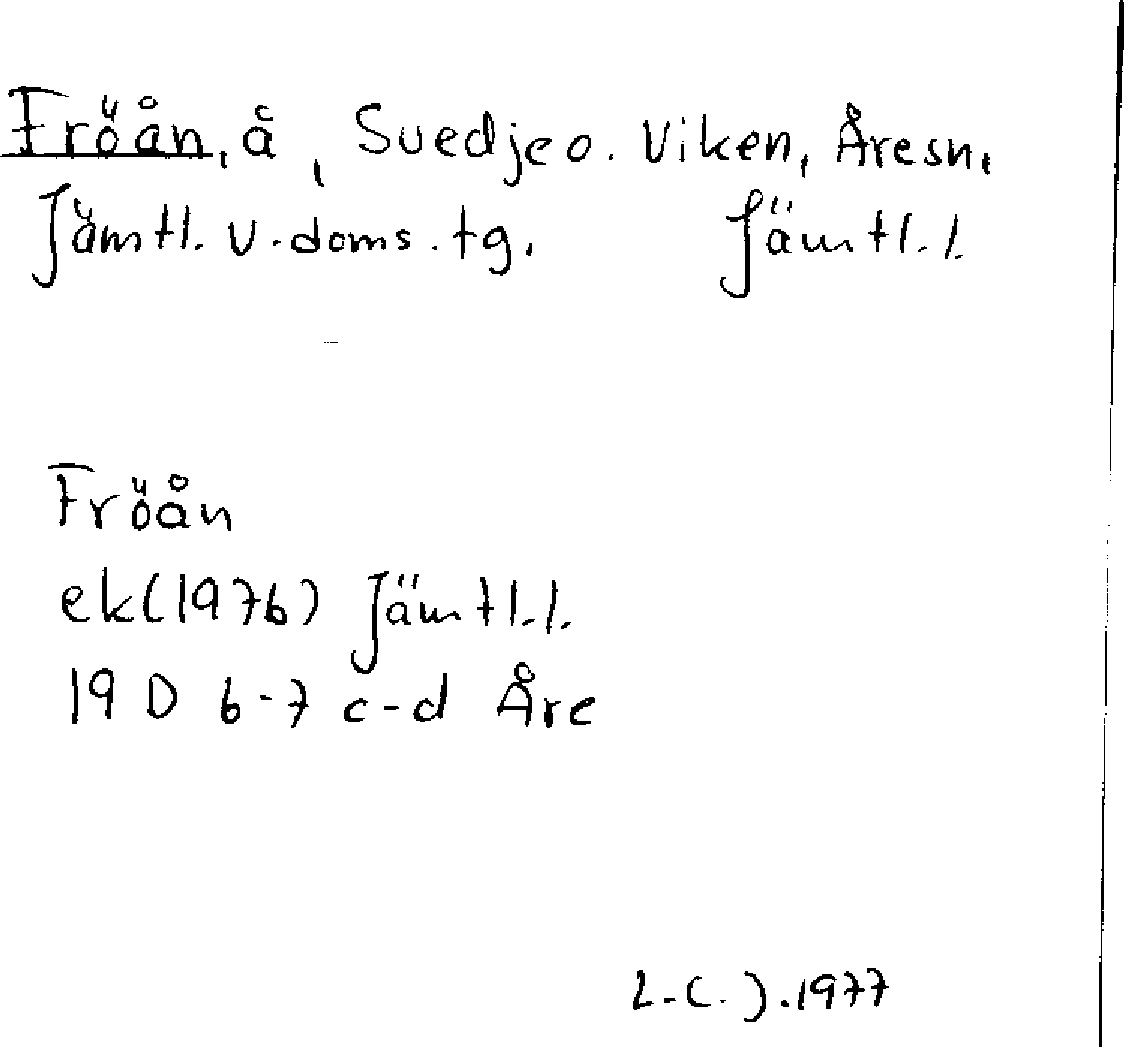 Fröån, å, Svedje o. Viken, Åre sn,
Jämtl. v. doms. tg. Jämtl. l.
Fröån
ek (1976) Jämtl. l.
19 D 6-7 c-d Åre
L-C. J. 1977